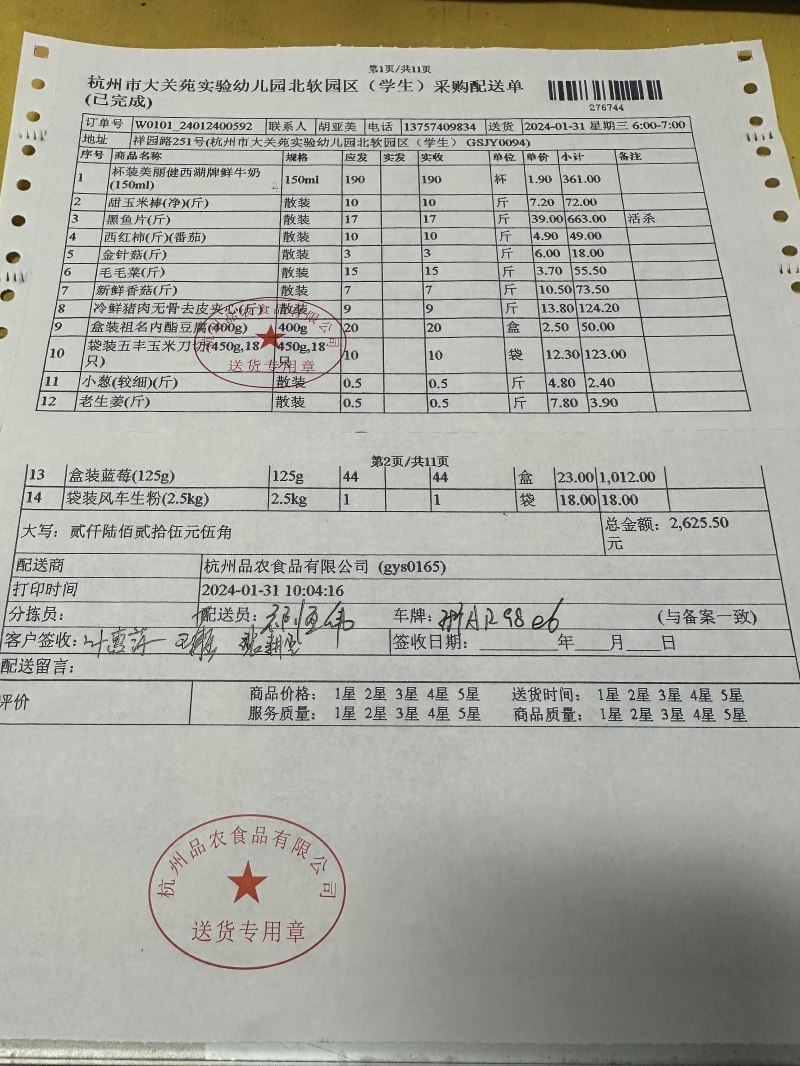 第1页/共11页
杭州市大关苑实验幼儿园北软园区（学生）采购配送单
(已完成)
276744
订单号 W0101_24012400592 联系人 胡亚美 电话 13757409834 送货 2024-01-31 星期三 6:00-7:00
地址 祥园路251号(杭州市大关苑实验幼儿园北软园区（学生） GSJY0094)
序号 商品名称 规格 应发 实发 实收 单位 单价 小计 备注
1 杯装美丽健西湖牌鲜牛奶 150ml 190 190 杯 1.90 361.00
(150ml)
2 甜玉米棒(净)(斤) 散装 10 10 斤 7.20 72.00
3 黑鱼片(斤) 散装 17 17 斤 39.00 663.00 活杀
4 西红柿(斤)(番茄) 散装 10 10 斤 4.90 49.00
5 金针菇(斤) 散装 3 3 斤 6.00 18.00
6 毛毛菜(斤) 散装 15 15 斤 3.70 55.50
7 新鲜香菇(斤) 散装 7 7 斤 10.50 73.50
8 冷鲜猪肉无骨去皮夹心(斤) 散装 9 9 斤 13.80 124.20
9 盒装祖名内酯豆腐(400g) 400g 20 20 盒 2.50 50.00
10 袋装五丰玉米刀切(450g,18 450g,18 10 10 袋 12.30 123.00
只) 只
送货专用章
11 小葱(较细)(斤) 散装 0.5 0.5 斤 4.80 2.40
12 老生姜(斤) 散装 0.5 0.5 斤 7.80 3.90
第2页/共11页
13 盒装蓝莓(125g) 125g 44 44 盒 23.00 1,012.00
14 袋装风车生粉(2.5kg) 2.5kg 1 1 袋 18.00 18.00
大写：贰仟陆佰贰拾伍元伍角 总金额：2,625.50
元
配送商 杭州品农食品有限公司 (gys0165)
打印时间 2024-01-31 10:04:16
分拣员： 配送员： 车牌：浙AR98e6 (与备案一致)
客户签收： 签收日期：______年___月___日
配送留言：
评价 商品价格： 1星 2星 3星 4星 5星 送货时间： 1星 2星 3星 4星 5星
服务质量： 1星 2星 3星 4星 5星 商品质量： 1星 2星 3星 4星 5星
杭州品农食品有限公司
送货专用章